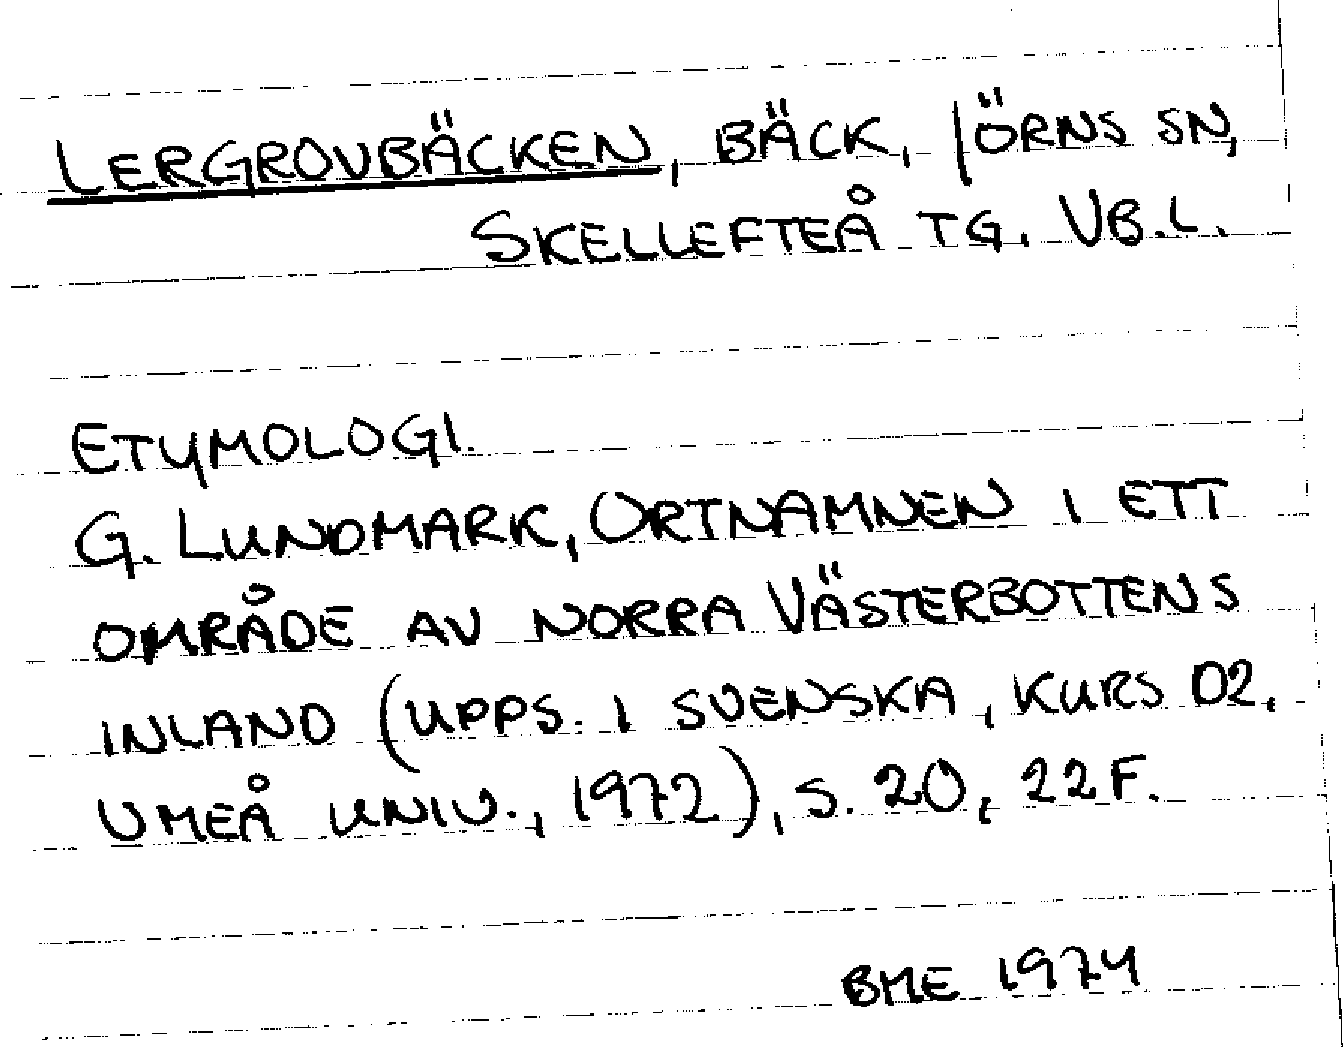 LERGROVBÄCKEN, BÄCK, JÖRNS SN,
SKELLEFTEÅ TG. VB.L.
ETYMOLOGI.
G. LUNDMARK, ORTNAMNEN I ETT
OMRÅDE AV NORRA VÄSTERBOTTENS
INLAND (UPPS. I SVENSKA, KURS D2,
UMEÅ UNIV., 1972), S. 20, 22F.
BME 1974